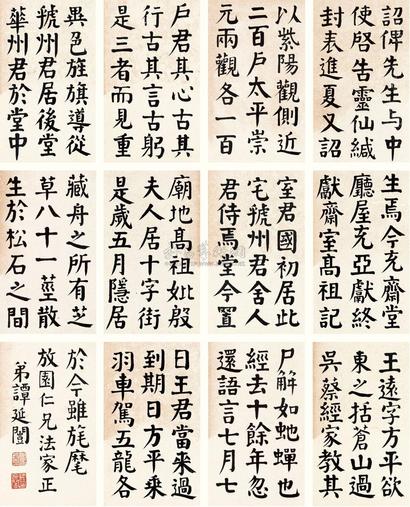 詔俾先生与中
使啓告靈仙緘
封表進夏又詔
以紫陽觀側近
二百户太平崇
元兩觀各一百
户君其心古其
行古其言古躬
是三者而見重
異色旌旗導從
虢州君居後堂
華州君於堂中
生焉今充齋堂
廳屋充亞獻終
獻齋室髙祖記
室君國初居此
宅虢州君舍人
君侍焉堂今置
廟地髙祖妣殷
夫人居十字街
是歲五月隱居
藏舟之所有芝
草八十一莖散
生於松石之間
王遠字方平欲
東之括蒼山過
吳蔡經家教其
尸解如虵蟬也
經去十餘年忽
還語言七月七
日王君當来過
到期日方平乘
羽車駕五龍各
於今雖旄麾
放園仁兄法家正
弟譚延闓